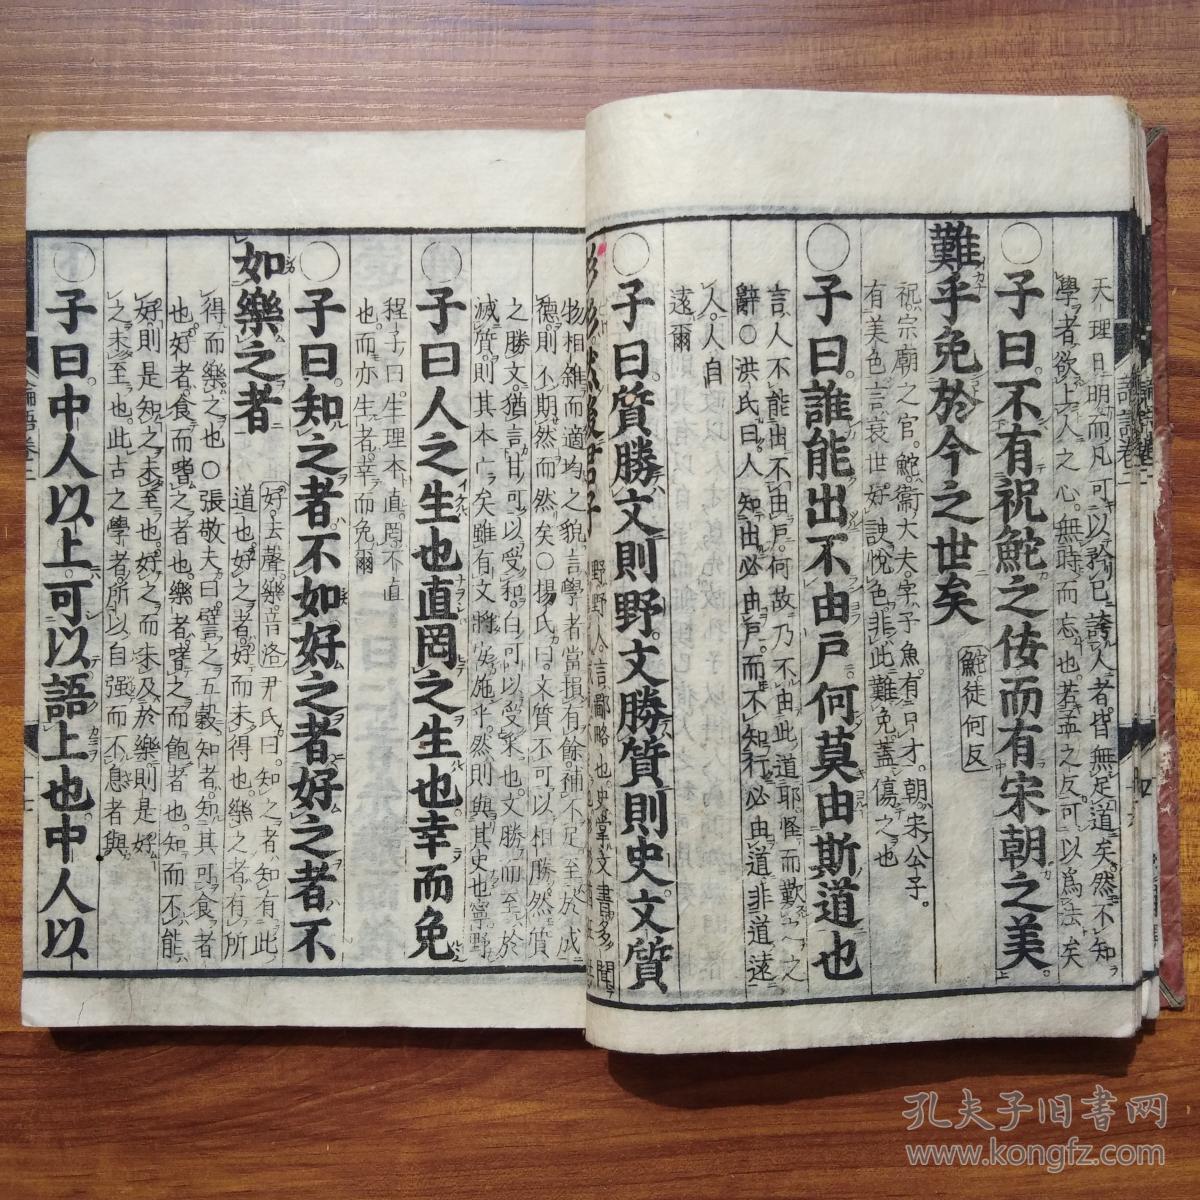 天理日明而凡可以矜己誇人者皆無足道矣然不知
學者欲上人之心無時而忘也若孟之反可以爲法矣
○子曰不有祝鮀之佞而有宋朝之美
難乎免於今之世矣 鮀徒何反
祝宗廟之官鮀衞大夫字子魚有口才朝宋公子
有美色言衰世好諛悅色非此難免蓋傷之也
○子曰誰能出不由戶何莫由斯道也
言人不能出不由戶何故乃不由此道耶怪而歎之之
辭○洪氏曰人知出必由戶而不知行必由道非道遠
人人自
遠爾
○子曰質勝文則野文勝質則史文質
彬彬然後君子
野野人言鄙略也史掌文書多聞
物相雜而適均之貌言學者當損有餘補不足至於成
德則不期然而然矣○揚氏曰文質不可以相勝然質
之勝文猶言甘可以受和白可以受采也文勝而至於
滅質則其本亡矣雖有文將安施乎然則與其史也寧野
○子曰人之生也直罔之生也幸而免
程子曰生理本直罔不直
也而亦生者幸而免爾
○子曰知之者不如好之者好之者不
如樂之者
好去聲樂音洛 尹氏曰知之者知有此
道也好之者好而未得也樂之者有所
得而樂之也○張敬夫曰譬之五穀知者知其可食者
也好者食而嗜之者也樂者嗜之而飽者也知而不能
好則是知之未至也好之而未及於樂則是好
之未至也此古之學者所以自强而不息者與
○子曰中人以上可以語上也中人以
論語卷三
孔夫子旧书网
www.kongfz.com